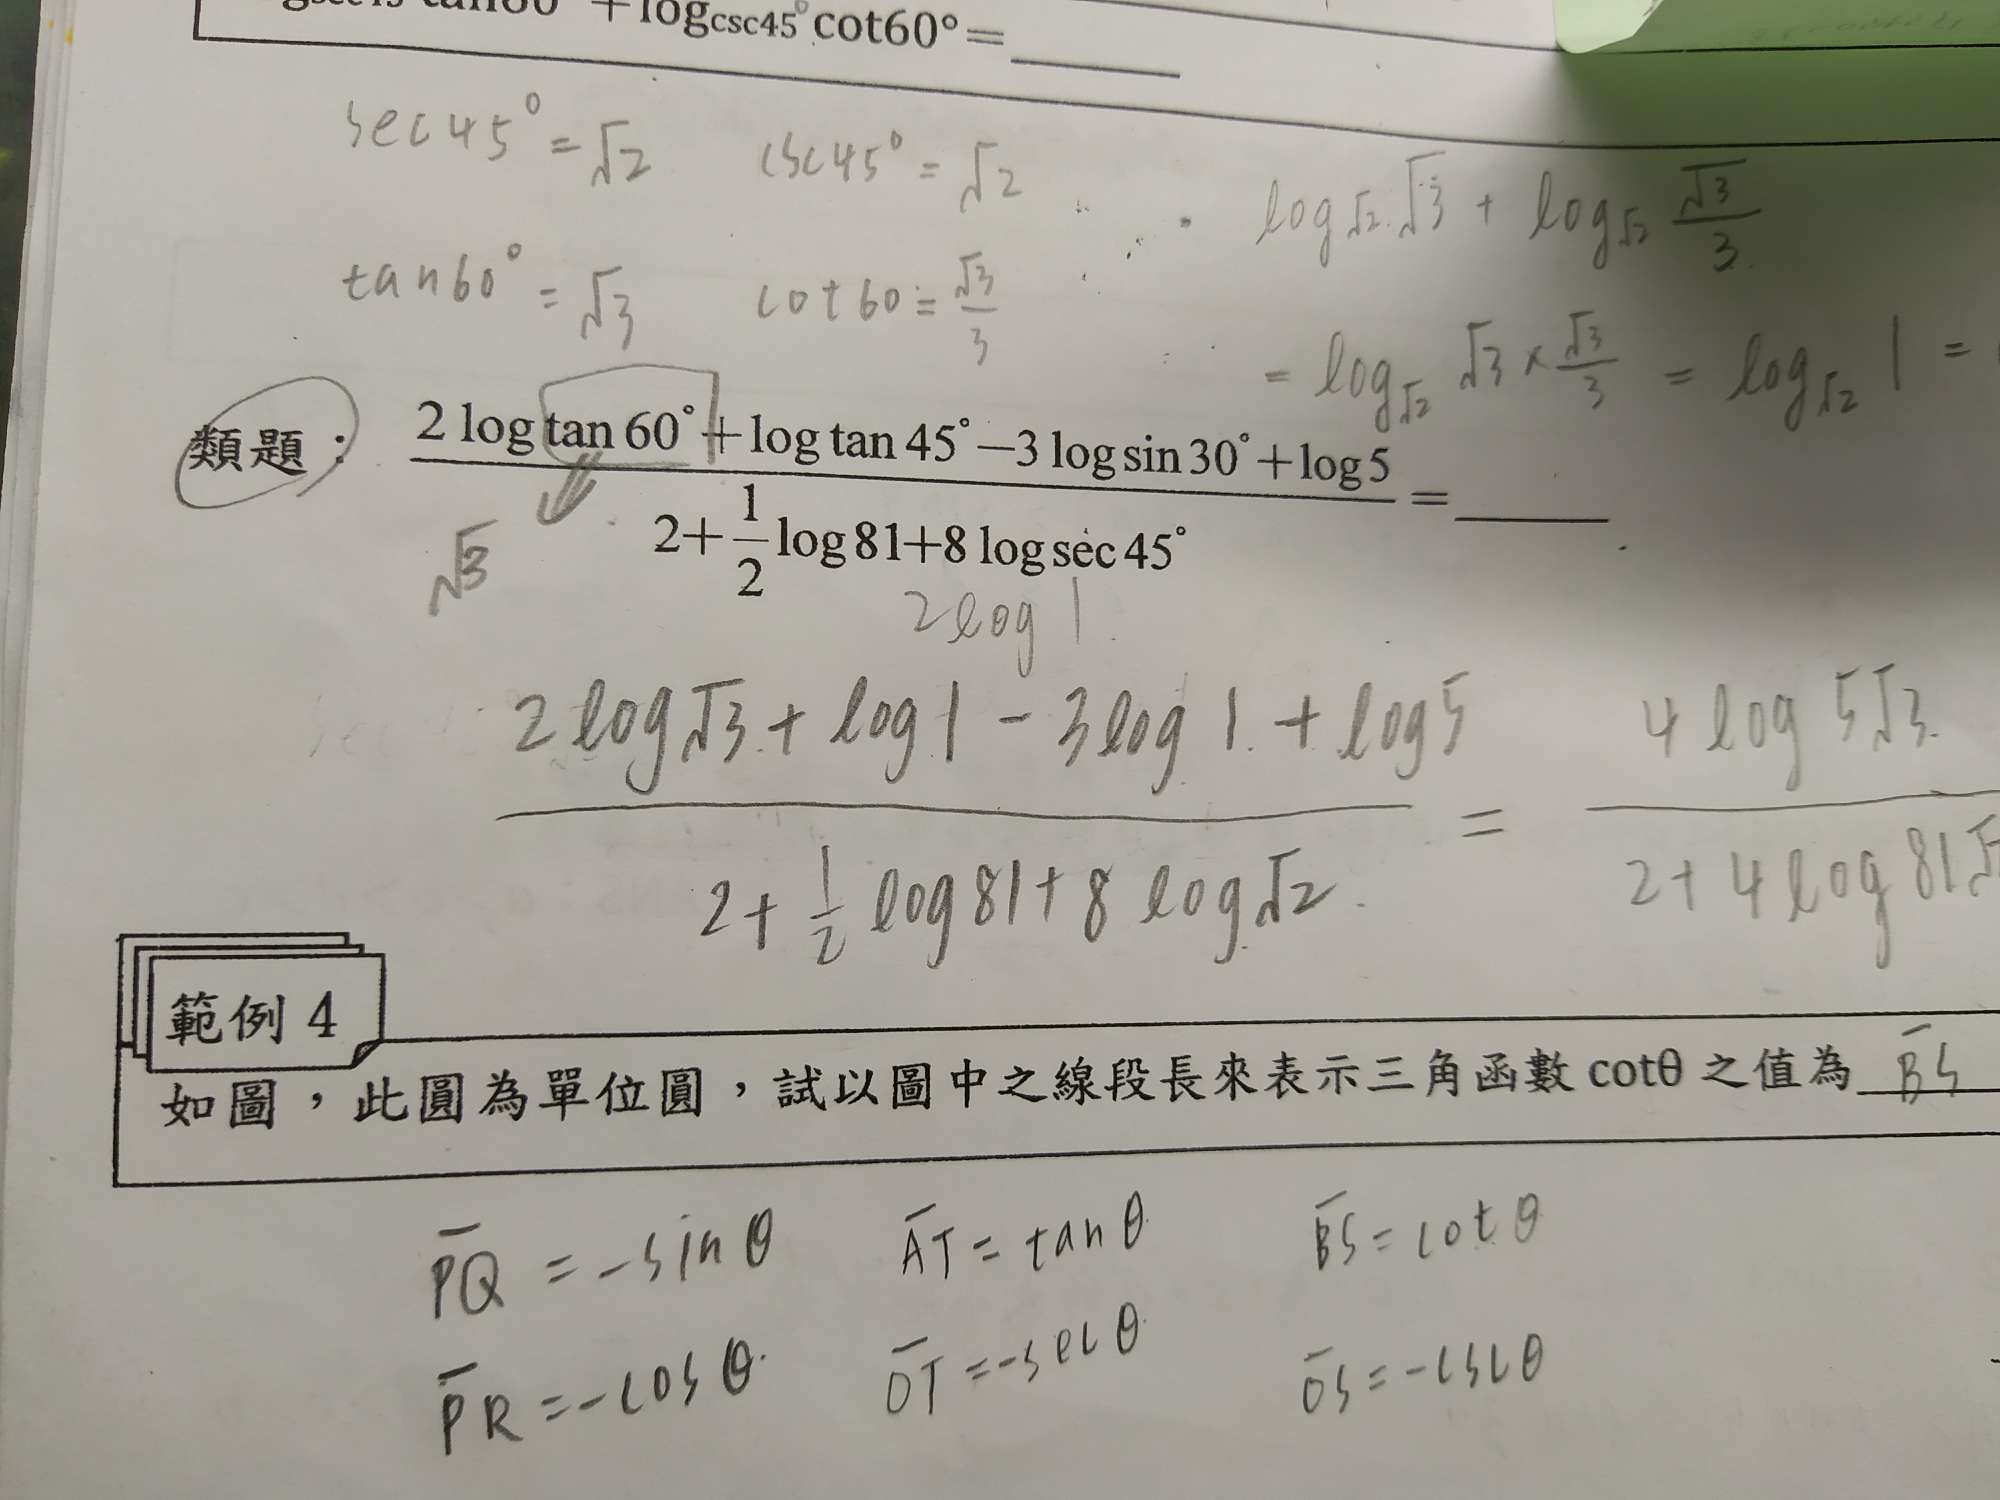 +log_{csc45°}cot60°=____
sec45° = √2 csc45° = √2
log_{√2} √3 + log_{√2} √3/3
tan60° = √3 cot60 = √3/3
= log_{√2} √3 × √3/3 = log_{√2} 1 =
類題： (2 log tan 60° + log tan 45° − 3 log sin 30° + log 5) / (2 + 1/2 log 81 + 8 log sec 45°) = ____
√3
2log 1
(2 log √3 + log 1 − 3 log 1 + log 5) / (2 + 1/2 log 81 + 8 log √2) = 4 log 5√3 / 2 + 4 log 81√
範例 4
如圖，此圓為單位圓，試以圖中之線段長來表示三角函數 cotθ 之值為 B̅S̅
P̅Q̅ = −sinθ A̅T̅ = tanθ B̅S̅ = cotθ
P̅R̅ = −cosθ O̅T̅ = −secθ O̅S̅ = −cscθ